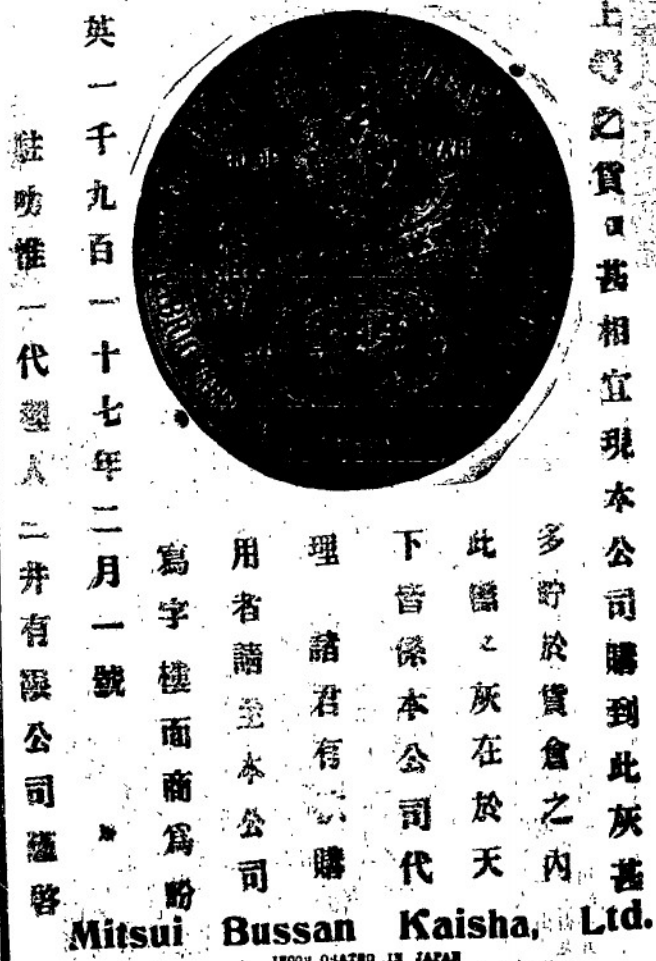 上等之貨甚相宜現本公司購到此灰甚
多貯於貨倉之內
此灰在於天
下皆係本公司代
理 諸君有購
用者請至本公司
寫字樓面商爲盼
英一千九百一十七年二月一號
駐叻惟一代理人 三井有限公司謹啓
Mitsui Bussan Kaisha, Ltd.
INCORPORATED IN JAPAN